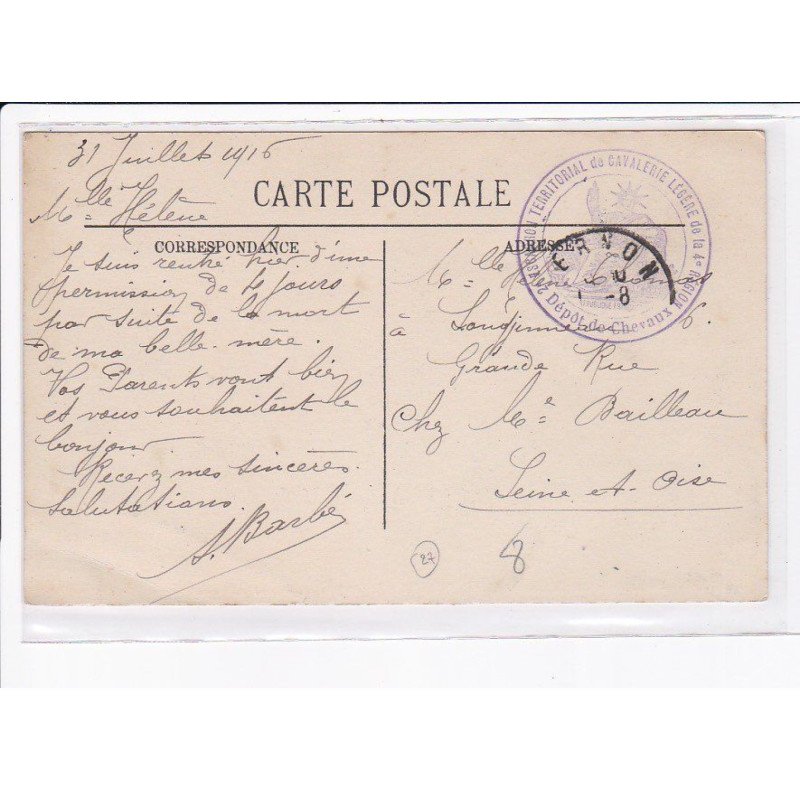 31 Juillet 1916
Mlle Hélène
CARTE POSTALE
CORRESPONDANCE
Je suis rentré hier d'une
permission de 4 jours
par suite de la mort
de ma belle-mère.
Vos Parents vont bien
et vous souhaitent le
bonjour
Recevez mes sincères
salutations.
A. Barbé
ADRESSE
Mlle
à Longjumeau
Grande Rue 6.
Chez Me Bailleau
Seine-et-Oise
TERRITORIAL de CAVALERIE LÉGÈRE de la 4e RÉGION
Dépôt de Chevaux
ERNON
-8
27
8